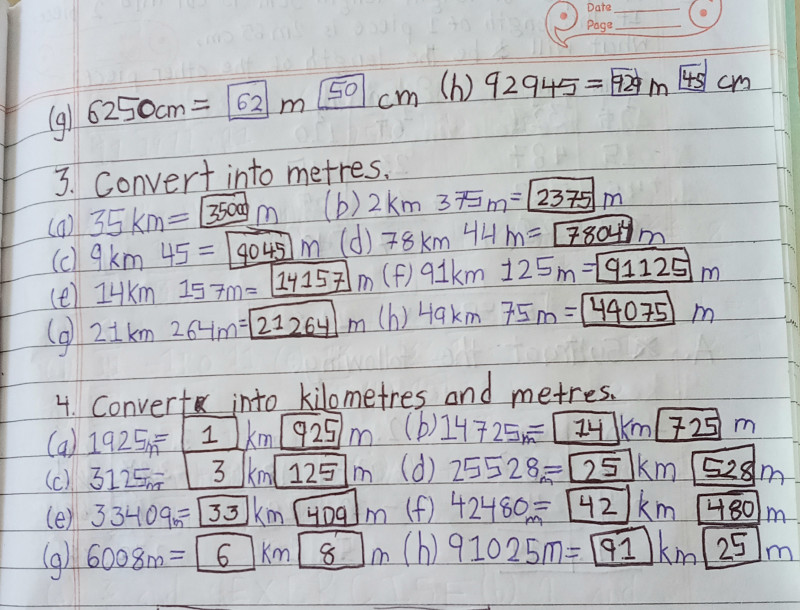 Date
Page
(g) 6250cm = 62 m 50 cm (h) 92945 = 929 m 45 cm
3. Convert into metres.
(a) 35 km = 35000 m (b) 2 km 375 m = 2375 m
(c) 9 km 45 = 9045 m (d) 78 km 44 m = 78044 m
(e) 14 km 157 m = 14157 m (f) 91 km 125 m = 91125 m
(g) 21 km 264 m = 21264 m (h) 49 km 75 m = 49075 m
4. Convert into kilometres and metres.
(a) 1925m = 1 km 925 m (b) 14725m = 14 km 725 m
(c) 3125m = 3 km 125 m (d) 25528m = 25 km 528 m
(e) 33409m = 33 km 409 m (f) 42480m = 42 km 480 m
(g) 6008m = 6 km 8 m (h) 91025m = 91 km 25 m